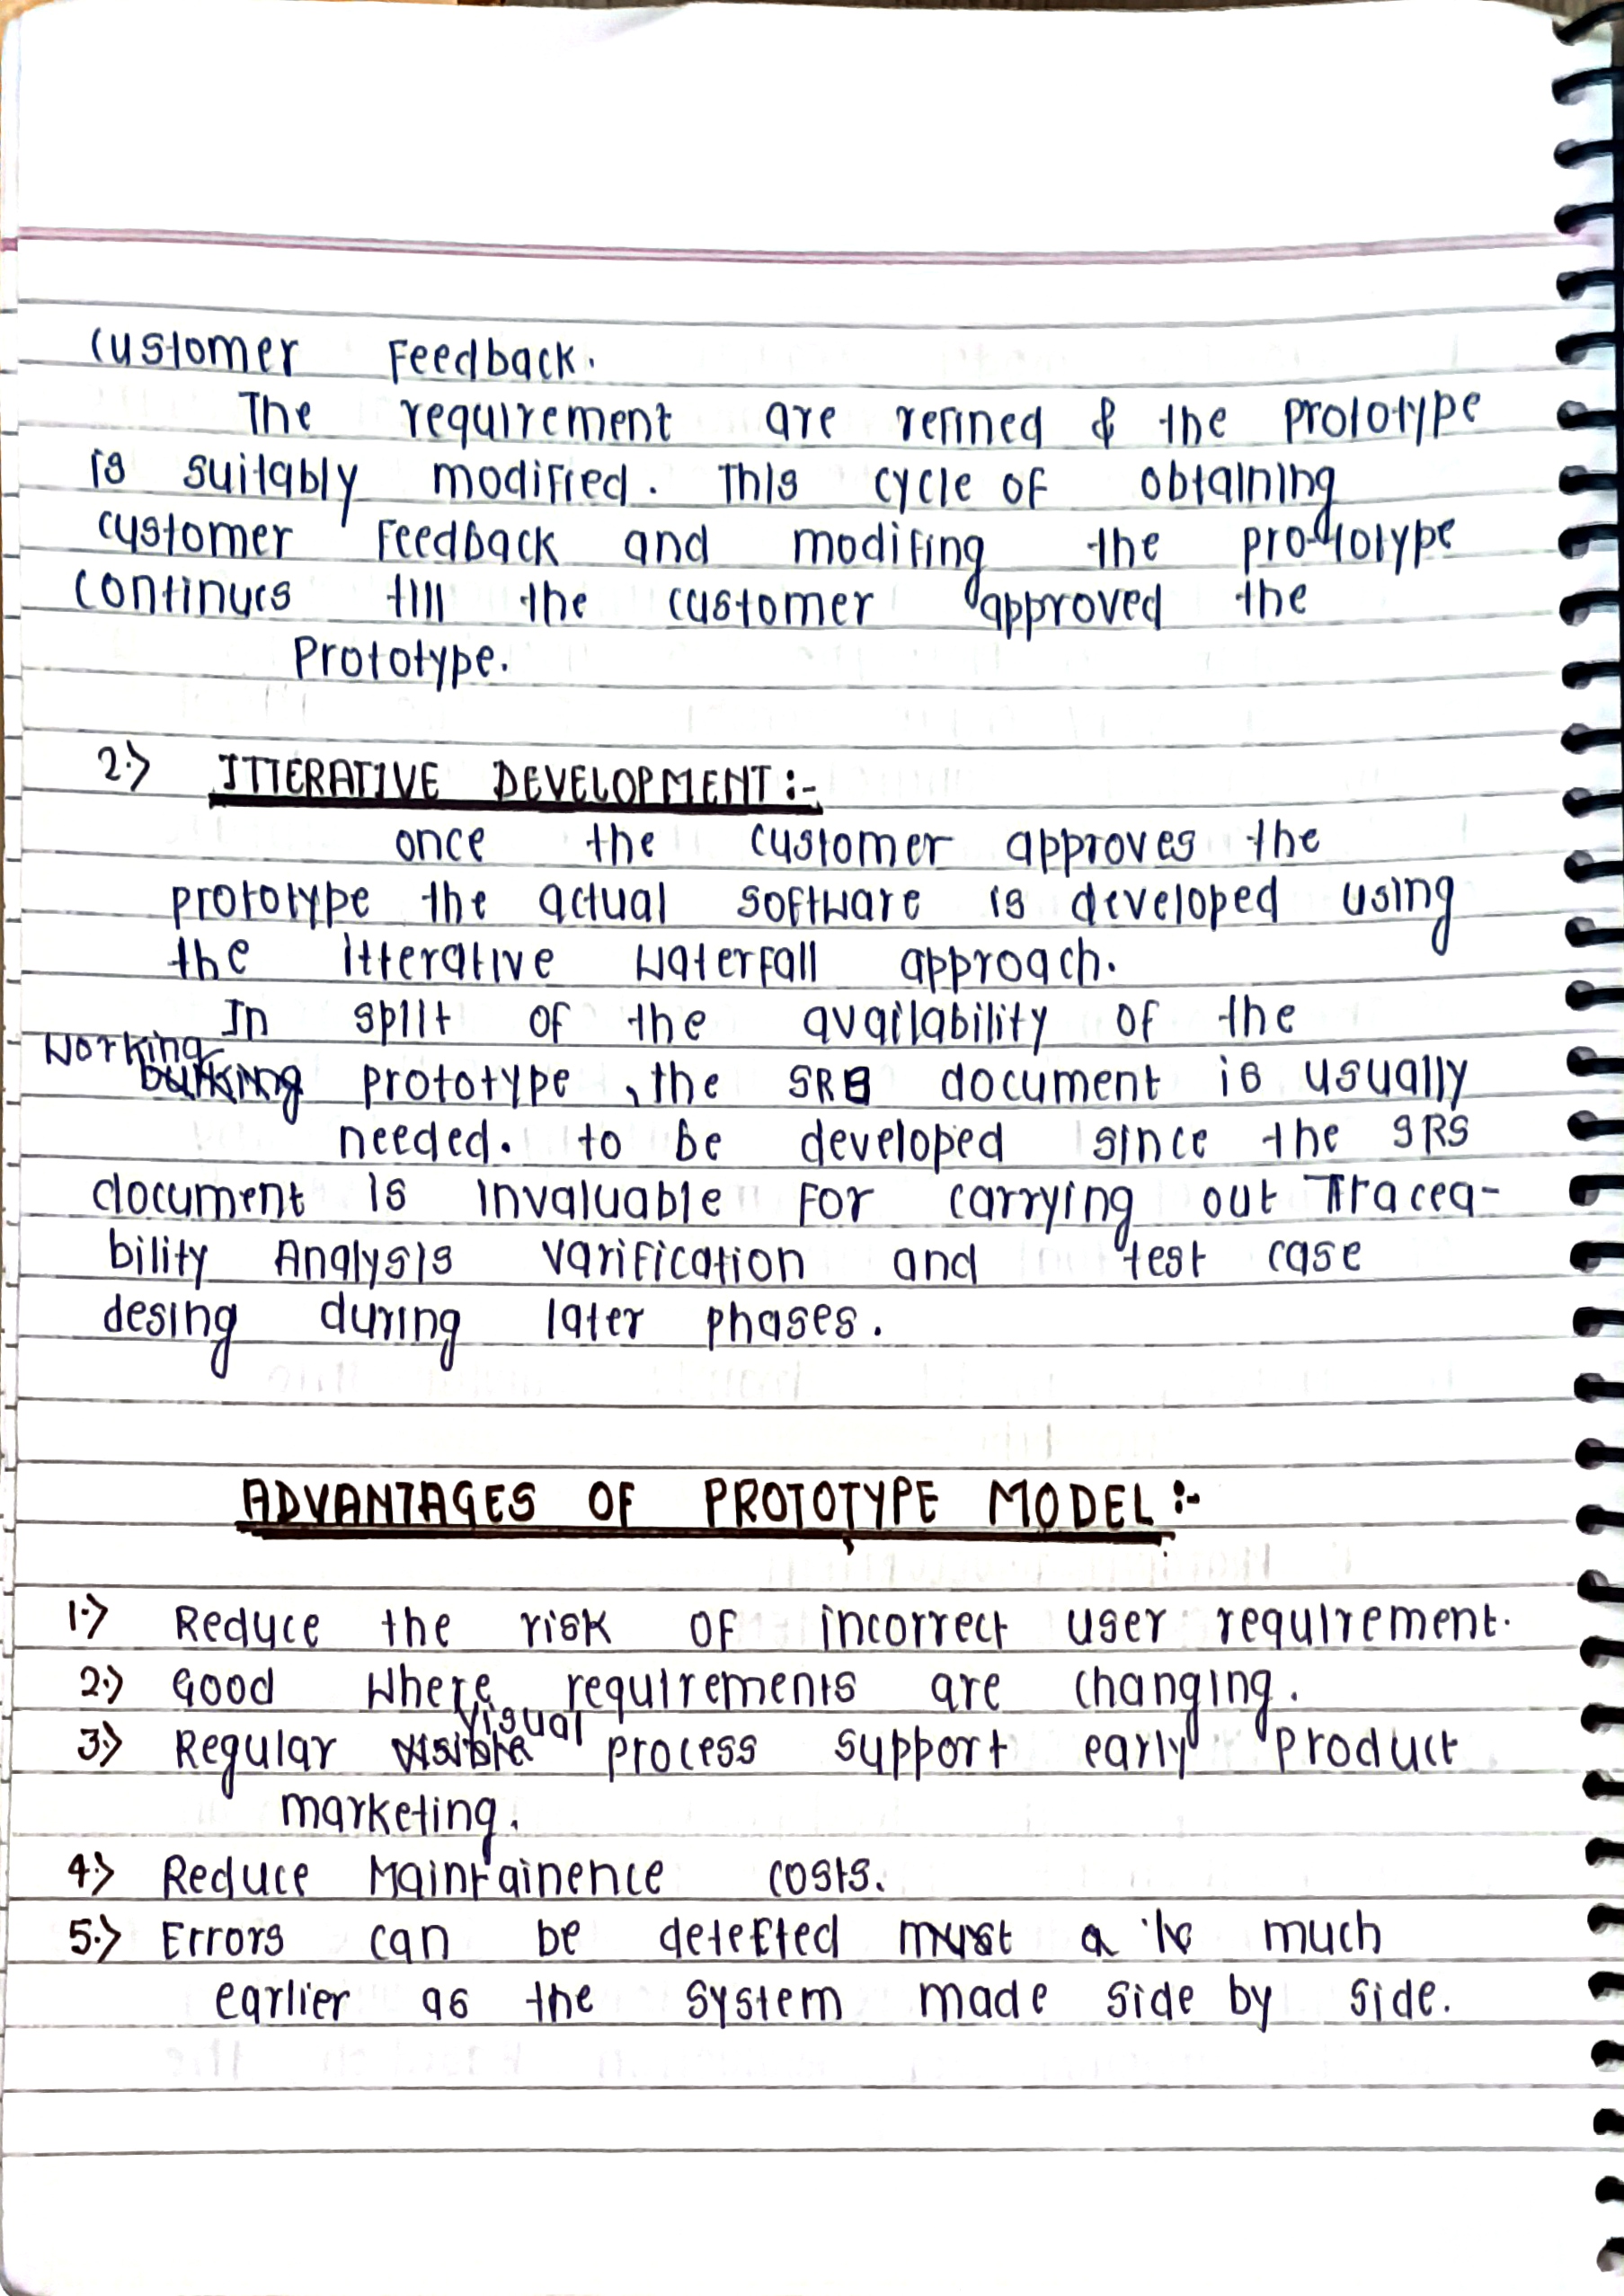 customer Feedback.
The requirement are refined & the prototype
is suitably modified. This cycle of obtaining
customer Feedback and modifing the prototype
continues till the customer approved the
Prototype.
2.> ITTERATIVE DEVELOPMENT:-
once the customer approves the
prototype the actual software is developed using
the itterative waterfall approach.
In spilt of the availability of the
working prototype, the SRS document is usually
needed. to be developed since the SRS
document is invaluable for carrying out Tracea-
bility Analysis varification and test case
desing during later phases.
ADVANTAGES OF PROTOTYPE MODEL:-
1.> Reduce the risk of incorrect user requirement.
2.> Good where requirements are changing.
3.> Regular visual process support early product
marketing.
4.> Reduce Maintainence costs.
5.> Errors can be detected much
earlier as the system made side by side.